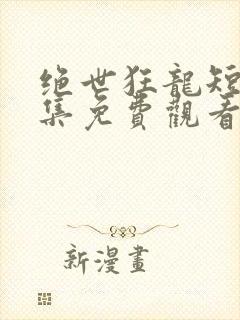 绝世狂龍短
集免費觀看
新漫畫